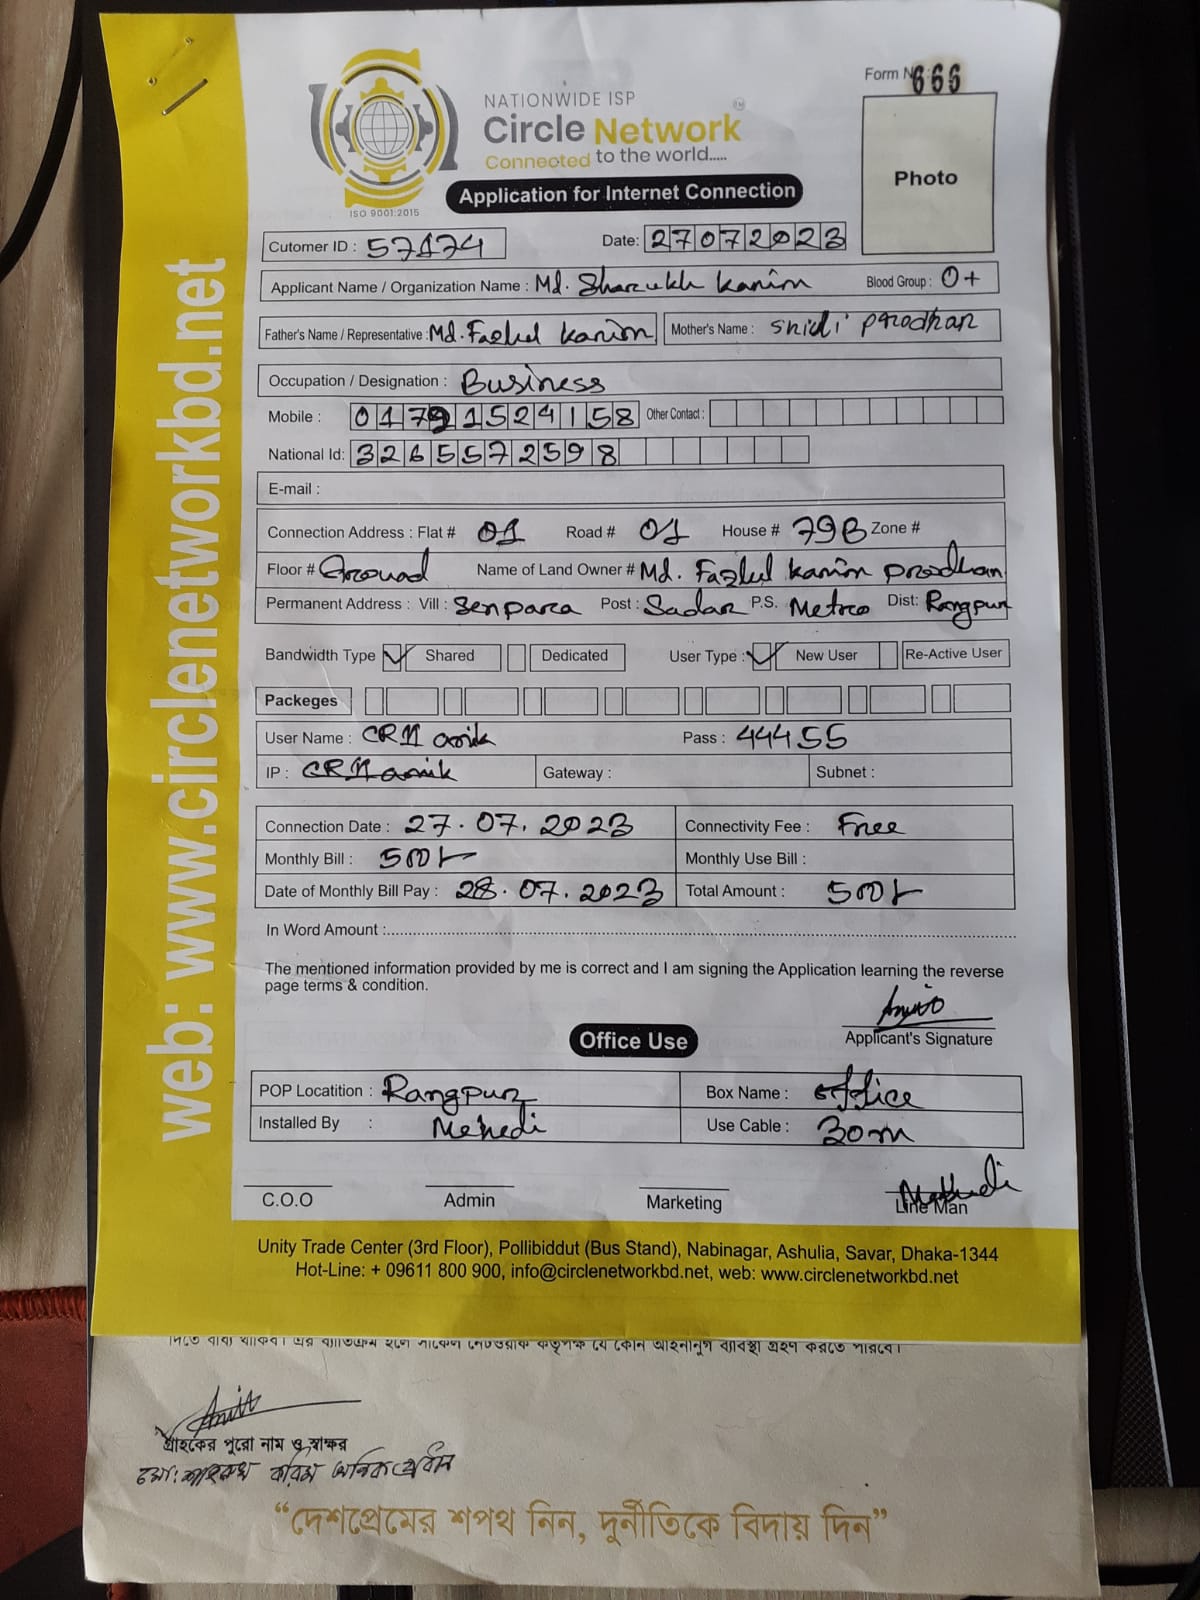 Form N: 666
NATIONWIDE ISP
Circle Network
Connected to the world.....
ISO 9001:2015
Application for Internet Connection
Photo
Cutomer ID : 57174
Date: 27072023
Applicant Name / Organization Name : Md. Sharukh Karim Blood Group : O+
Father's Name / Representative : Md. Fazlul Karim Mother's Name :
Occupation / Designation : Business
Mobile : 01721524158 Other Contact :
National Id: 3265572598
E-mail :
Connection Address : Flat # 01 Road # 01 House # 79B Zone #
Floor # Ground Name of Land Owner # Md. Fazlul Karim Prodhan
Permanent Address : Vill : Senpara Post : Sadar P.S. Metro Dist: Rangpur
Bandwidth Type Shared Dedicated User Type : New User Re-Active User
Packeges
User Name : Pass : 44455
IP : Gateway : Subnet :
Connection Date : 27.07.2023 Connectivity Fee : Free
Monthly Bill : 500/- Monthly Use Bill :
Date of Monthly Bill Pay : 28.07.2023 Total Amount : 500/-
In Word Amount :
The mentioned information provided by me is correct and I am signing the Application learning the reverse
page terms & condition.
Applicant's Signature
Office Use
POP Locatition : Rangpur Box Name : office
Installed By : Mehedi Use Cable : 30m
Mehedi
C.O.O Admin Marketing Line Man
Unity Trade Center (3rd Floor), Pollibiddut (Bus Stand), Nabinagar, Ashulia, Savar, Dhaka-1344
Hot-Line: + 09611 800 900, info@circlenetworkbd.net, web: www.circlenetworkbd.net
web: www.circlenetworkbd.net
দিতে বাধ্য থাকিব। এর ব্যতিক্রম হলে সার্কেল নেটওয়ার্ক কর্তৃপক্ষ যে কোন আইনানুগ ব্যবস্থা গ্রহণ করতে পারবে।
গ্রাহকের পুরো নাম ও স্বাক্ষর
মো: শাহরুখ করিম অনিক প্রধান
“দেশপ্রেমের শপথ নিন, দুর্নীতিকে বিদায় দিন”